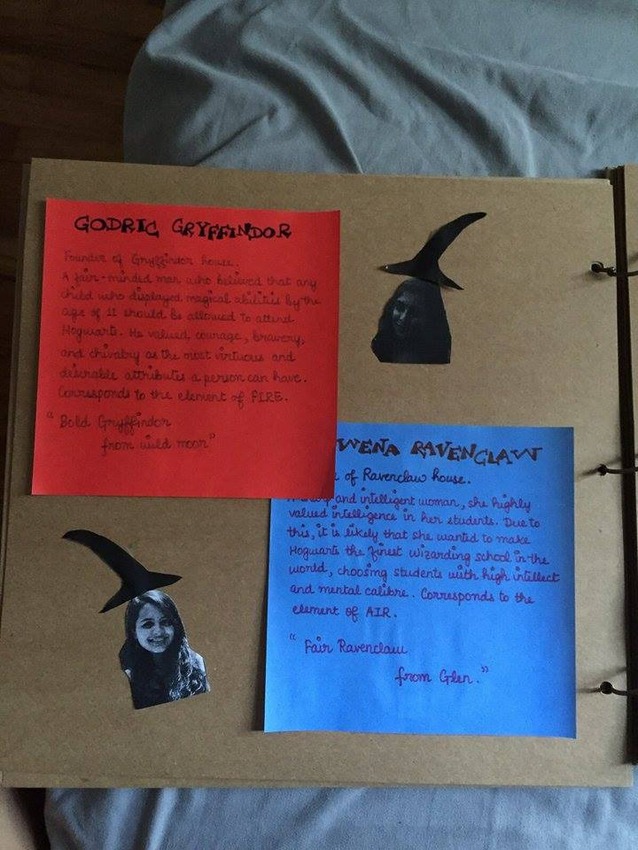 GODRIC GRYFFINDOR
Founder of Gryffindor house.
A fair-minded man who believed that any
child who displayed magical abilities by the
age of 11 should be allowed to attend
Hogwarts. He valued, courage, bravery,
and chivalry as the most virtuous and
desirable attributes a person can have.
Corresponds to the element of FIRE.
"Bold Gryffindor
from wild moor"
WENA RAVENCLAW
of Ravenclaw house.
and intelligent woman, she highly
valued intelligence in her students. Due to
this, it is likely that she wanted to make
Hogwarts the finest wizarding school in the
world, choosing students with high intellect
and mental calibre. Corresponds to the
element of AIR.
"Fair Ravenclaw
from Glen."